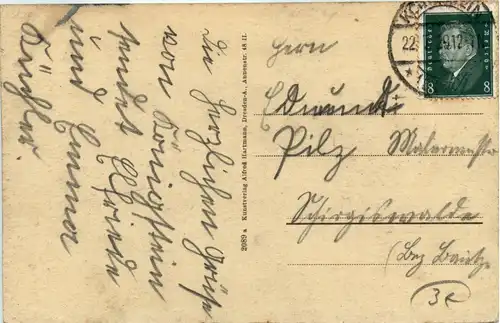 Die herzlichen Grüße
von Königstein
sendet Elfriede
und Emma
2989 a Kunstverlag Alfred Hartmann, Dresden-A., Annenstr. 48 II.
Herrn
Edmund
Pilz Malermeister
Schirgiswalde
(Bez Bautz.
3E
22. 29.12
Deutsches Reich
8 8